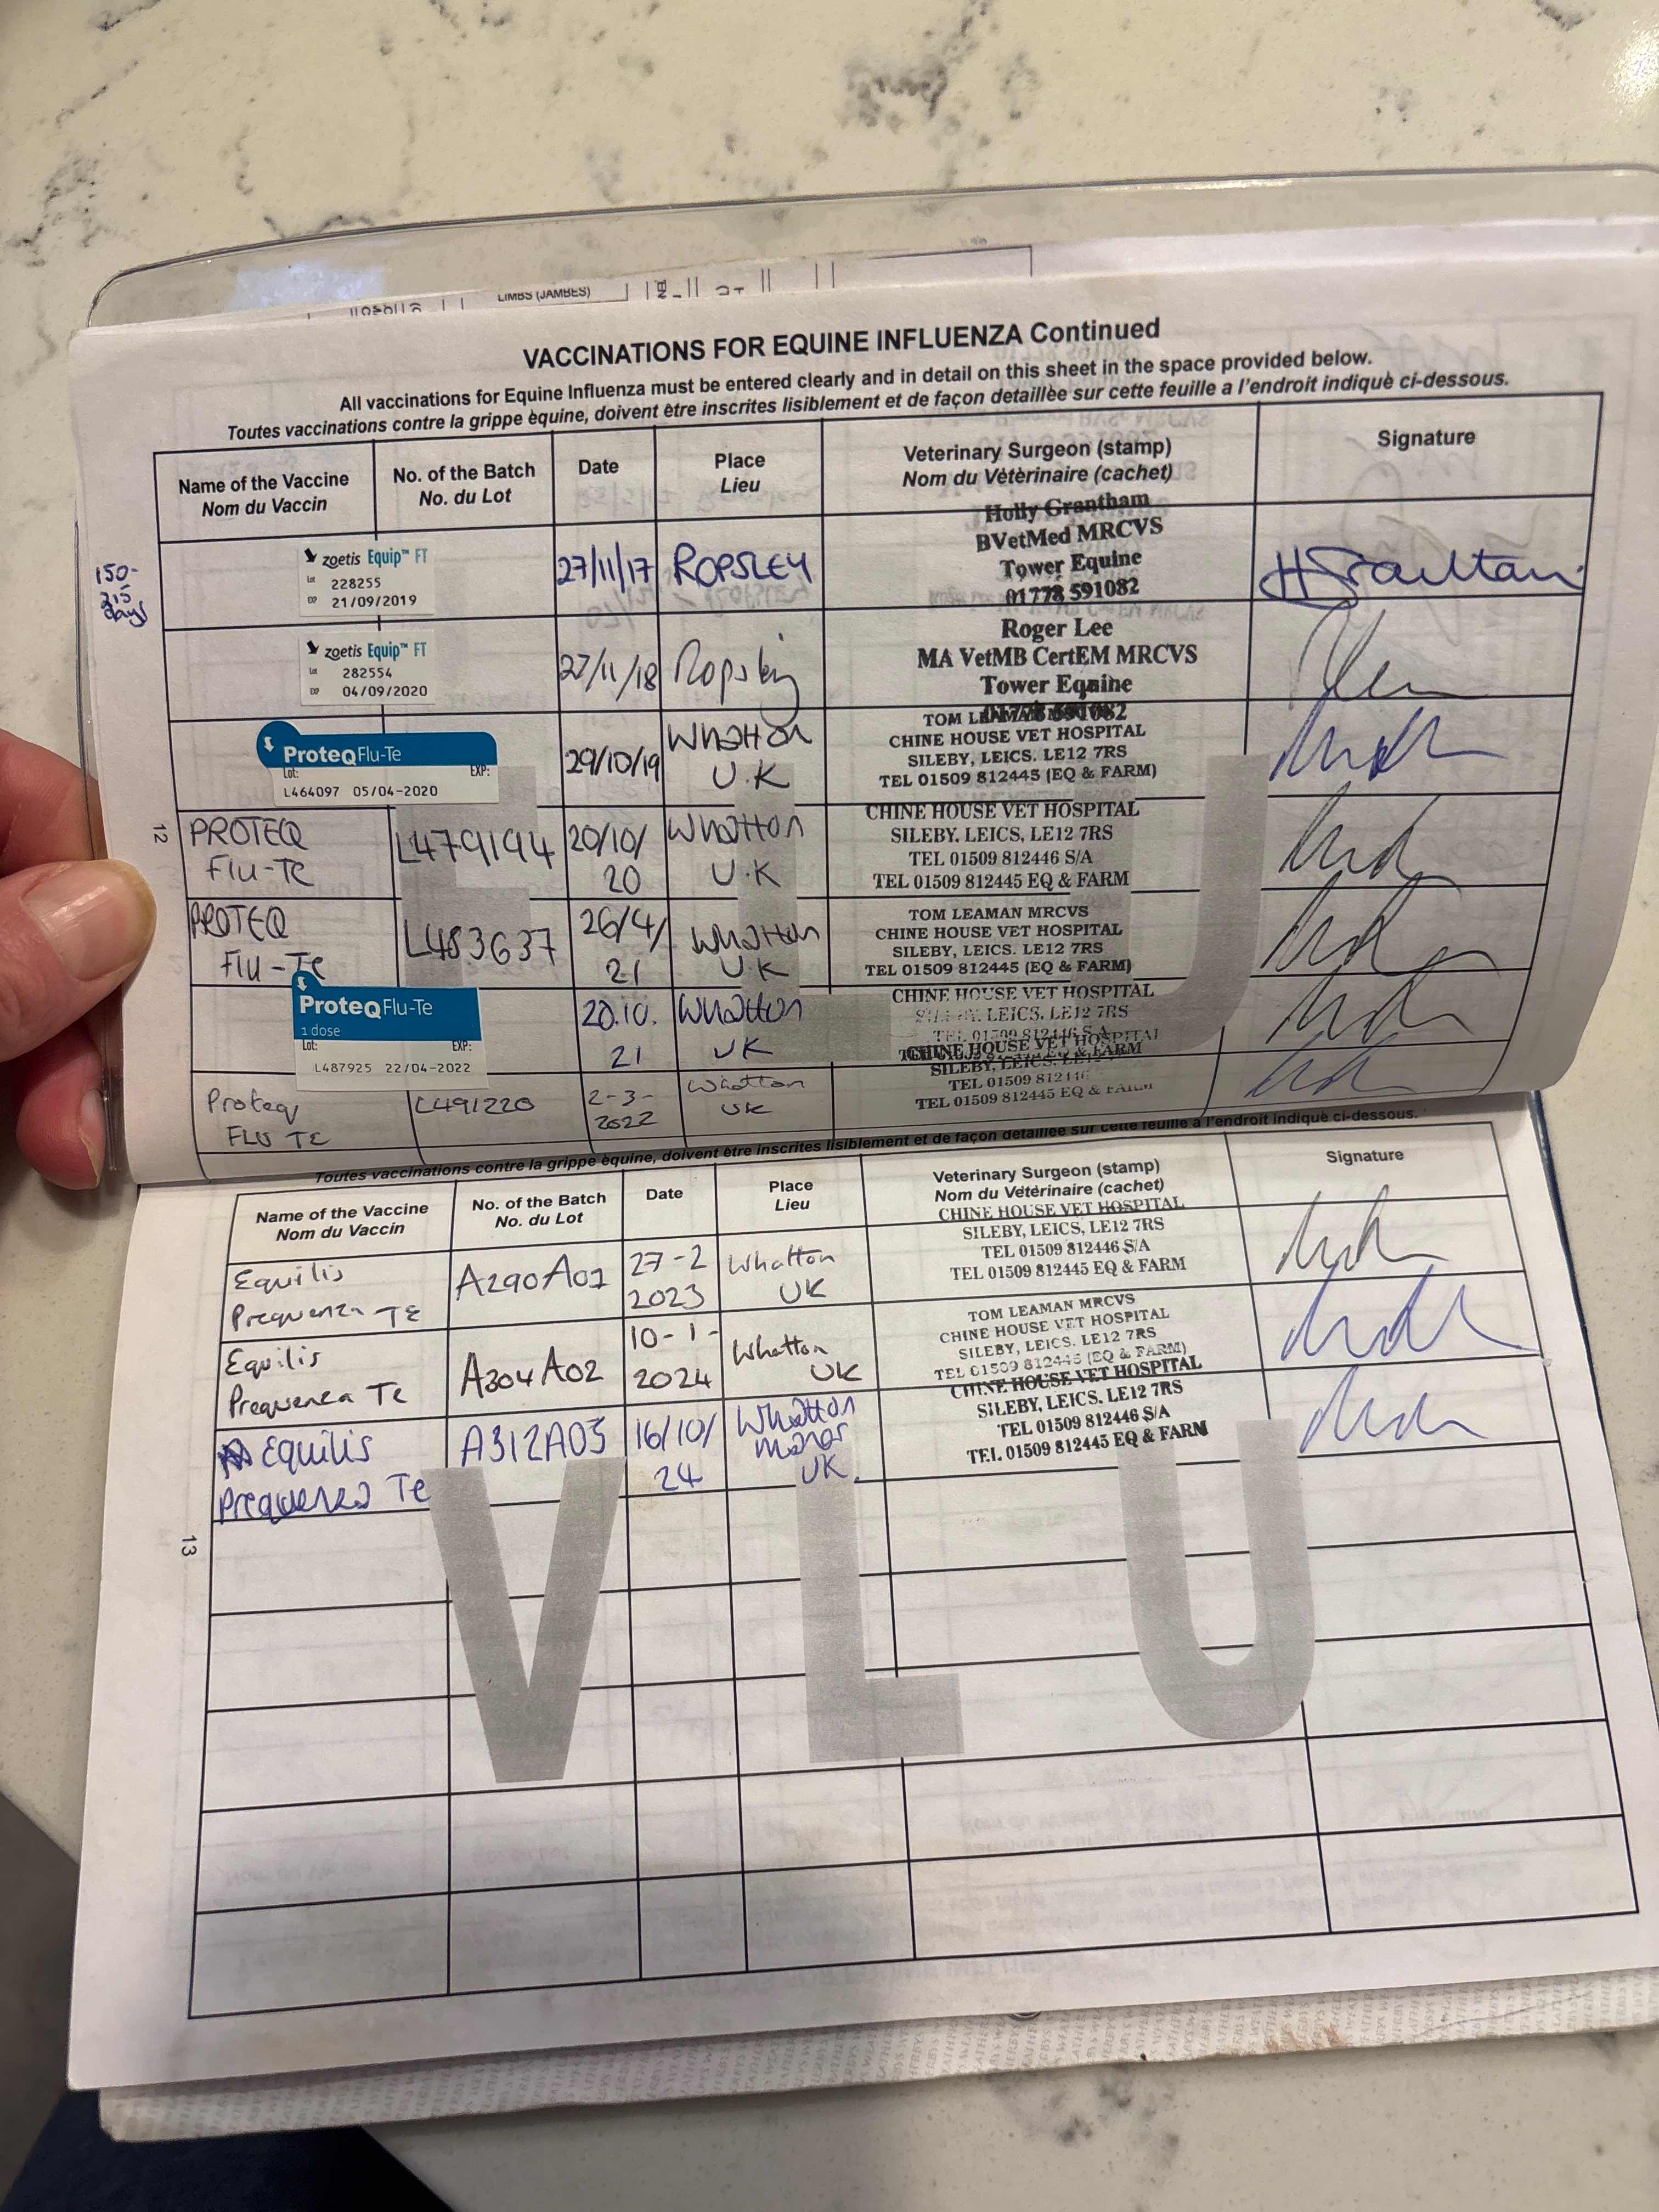 LIMBS (JAMBES)
VACCINATIONS FOR EQUINE INFLUENZA Continued
All vaccinations for Equine Influenza must be entered clearly and in detail on this sheet in the space provided below.
Toutes vaccinations contre la grippe èquine, doivent être inscrites lisiblement et de façon detaillèe sur cette feuille a l'endroit indiquè ci-dessous.
Name of the Vaccine
Nom du Vaccin
No. of the Batch
No. du Lot
Date
Place
Lieu
Veterinary Surgeon (stamp)
Nom du Vètèrinaire (cachet)
Signature
150-
215
days
zoetis Equip™ FT
Lot 228255
EXP 21/09/2019
27/11/17
ROPSLEY
Holly Grantham
BVetMed MRCVS
Tower Equine
01778 591082
zoetis Equip™ FT
Lot 282554
EXP 04/09/2020
27/11/18
Ropsley
Roger Lee
MA VetMB CertEM MRCVS
Tower Equine
01778 591082
ProteqFlu-Te
Lot: EXP:
L464097 05/04-2020
29/10/19
Whatton
U.K
TOM LEAMAN MRCVS
CHINE HOUSE VET HOSPITAL
SILEBY, LEICS. LE12 7RS
TEL 01509 812445 (EQ & FARM)
12
PROTEQ
Flu-Te
L479194
20/10/
20
Whatton
U.K
CHINE HOUSE VET HOSPITAL
SILEBY, LEICS, LE12 7RS
TEL 01509 812446 S/A
TEL 01509 812445 EQ & FARM
PROTEQ
Flu-Te
L483637
26/4/
21
Whatton
U.K
TOM LEAMAN MRCVS
CHINE HOUSE VET HOSPITAL
SILEBY, LEICS. LE12 7RS
TEL 01509 812445 (EQ & FARM)
ProteqFlu-Te
1 dose
Lot: EXP:
L487925 22/04-2022
20.10.
21
Whatton
UK
CHINE HOUSE VET HOSPITAL
SILEBY, LEICS, LE12 7RS
TEL 01509 812446 S/A
Proteq
FLU TE
L491220
2-3-
2022
Whatton
UK
CHINE HOUSE VET HOSPITAL
SILEBY, LEICS, LE12
TEL 01509 812446
TEL 01509 812445 EQ & FARM
Toutes vaccinations contre la grippe èquine, doivent ètre inscrites lisiblement et de façon detaillèe sur cette feuille a l'endroit indiquè ci-dessous.
Name of the Vaccine
Nom du Vaccin
No. of the Batch
No. du Lot
Date
Place
Lieu
Veterinary Surgeon (stamp)
Nom du Vètèrinaire (cachet)
Signature
Equilis
Prequenza TE
A290A01
27-2
2023
Whatton
UK
CHINE HOUSE VET HOSPITAL
SILEBY, LEICS, LE12 7RS
TEL 01509 812446 S/A
TEL 01509 812445 EQ & FARM
Equilis
Prequenza Te
A304A02
10-1-
2024
Whatton
UK
TOM LEAMAN MRCVS
CHINE HOUSE VET HOSPITAL
SILEBY, LEICS. LE12 7RS
TEL 01509 812445 (EQ & FARM)
Equilis
Prequenza Te
A312A03
16/10/
24
Whatton
Manor
UK
CHINE HOUSE VET HOSPITAL
SILEBY, LEICS, LE12 7RS
TEL 01509 812446 S/A
TEL 01509 812445 EQ & FARM
13
V L U